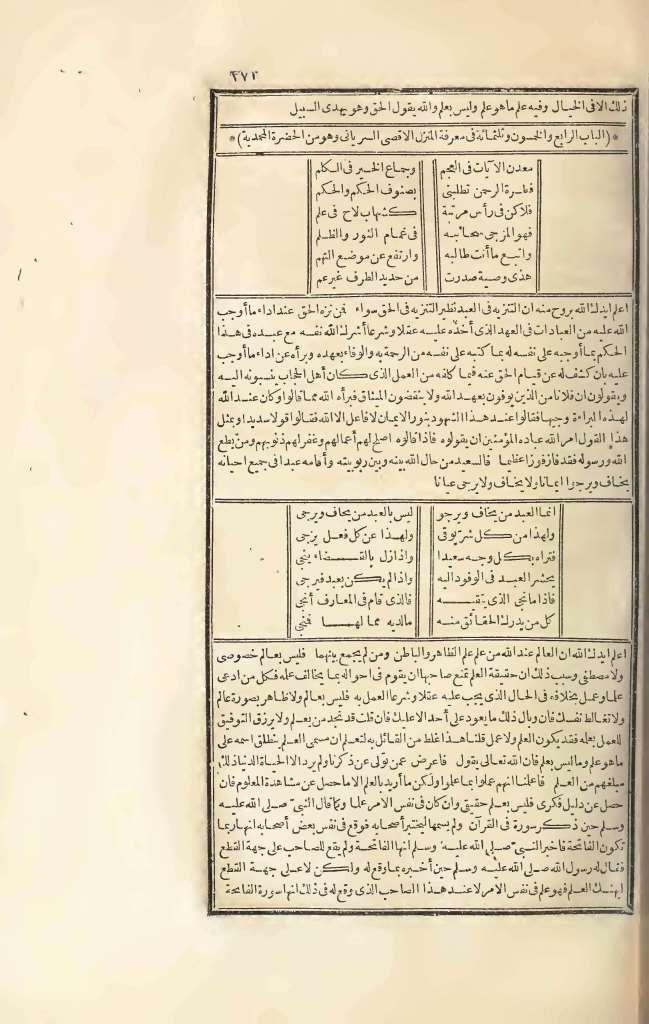 ٢٧٢
ذلك الا فى الخيال وفيه علم ما هو علم وليس بعلم والله يقول الحق وهو يهدى السبيل
* (الباب الرابع والخمسون وثلثمائة فى معرفة المنزل الاقصى السريانى وهو من الحضرة المحمدية) *
معدن الآيات فى العجم وجماع الخير فى الكلم
فعلرة الرحمن تطلبنى بصنوف الحكم والحكم
فلا كن فى رأس مرتبة كشهاب لاح فى علم
فهو المزجى سحائبه فى غمام النور والظلم
واتبع ما أنت طالبه وارتفع عن موضع التهم
هذى وصية صدرت من حديد الطرف غير عم
اعلم ايدك الله بروح منه ان التنزيه فى العبد نظير التنزيه فى الحق سواء فمن نزه الحق عند اداء ما أوجب
الله عليه من العبادات فى العهد الذى أخذه عليه عقلا وشرعا أشرك الله نفسه مع عبده فى هذا
الحكم بما أوجبه على نفسه له بما كتبه على نفسه من الرحمة به والوفاء بعهده وبرأه عن اداء ما أوجب
عليه بان كشف له عن قيام الحق عنه فيما كلفه من العمل الذى كان أهل الحجاب ينسبونه اليه
ويقولون ان فلانا من الذين يوفون بعهد الله ولا ينقضون الميثاق فبرأه الله مما قالوا وكان عند الله
لهذه البراءة وجيها فقالوا عند هذا الشهود بنور الايمان لا فاعل الا الله فقالوا قولا سديدا وبمثل
هذا القول امر الله عباده المؤمنين ان يقولوه فاذا قالوه اصلح لهم أعمالهم وغفر لهم ذنوبهم ومن يطع
الله ورسوله فقد فاز فوزا عظيما فالسعيد من حال الله بينه وبين ربوبيته وأقامه عبدا فى جميع احيانه
يخاف ويرجوا ايمانا ولا يخاف ولا يرجى عيانا
انما العبد من يخاف ويرجو ليس بالعبد من يخاف ويرجى
ولهذا من كل شر يوقى ولهذا عن كل فعل يزجى
فتراه بكل وجه سعيدا واذا زل بالقضاء ينجى
يحشر العبد فى الوفود اليه واذا لم يكن بعبد فيرجى
فاذا ما نجى الذى يتقيه فالذى قام فى المعارف أنجى
كل من يدرك الحقائق منه ما لديه مما لها فنجى
اعلم ايدك الله ان العالم عند الله من علم علم الظاهر والباطن ومن لم يجمع بينهما فليس بعالم خصوصى
ولا مصطفى وسبب ذلك ان حقيقة العلم تمنع صاحبها ان يقوم فى احواله بما يخالف علمه فكل من ادعى
علما وعمل بخلافه فى الحال الذى يجب عليه عقلا وشرعا العمل به فليس بعالم ولا ظاهر بصورة عالم
ولا تغالط نفسك فان وبال ذلك ما يعود على أحد الا عليك فان قلت قد نجد من يعلم ولا يرزق التوفيق
للعمل بعلمه فقد يكون العلم ولا عمل قلنا هذا غلط من القائل به لتعلم ان مسمى العلم ينطلق اسمه على
ما هو علم وما ليس بعلم فان الله تعالى يقول فاعرض عمن تولى عن ذكرنا ولم يرد الا الحياة الدنيا ذلك
مبلغهم من العلم فاعلمنا انهم عملوا بما علموا ولكن ما أريد بالعلم الا ما حصل عن مشاهدة المعلوم فان
حصل عن دليل فكرى فليس بعلم حقيقى وان كان فى نفس الامر علما وكما قال النبى صلى الله عليه
وسلم حين ذكر سورة فى القرآن ولم يسمها ليختبر أصحابه فوقع فى نفس بعض أصحابه انها ربما
تكون الفاتحة فاخبر النبى صلى الله عليه وسلم انها الفاتحة ولم يقع للصاحب على جهة القطع
فقال له رسول الله صلى الله عليه وسلم حين أخبره بما وقع له ولكن لا على جهة القطع
ليهنك العلم فهو علم فى نفس الامر لا عند هذا الصاحب الذى وقع له فى ذلك انها سورة الفاتحة